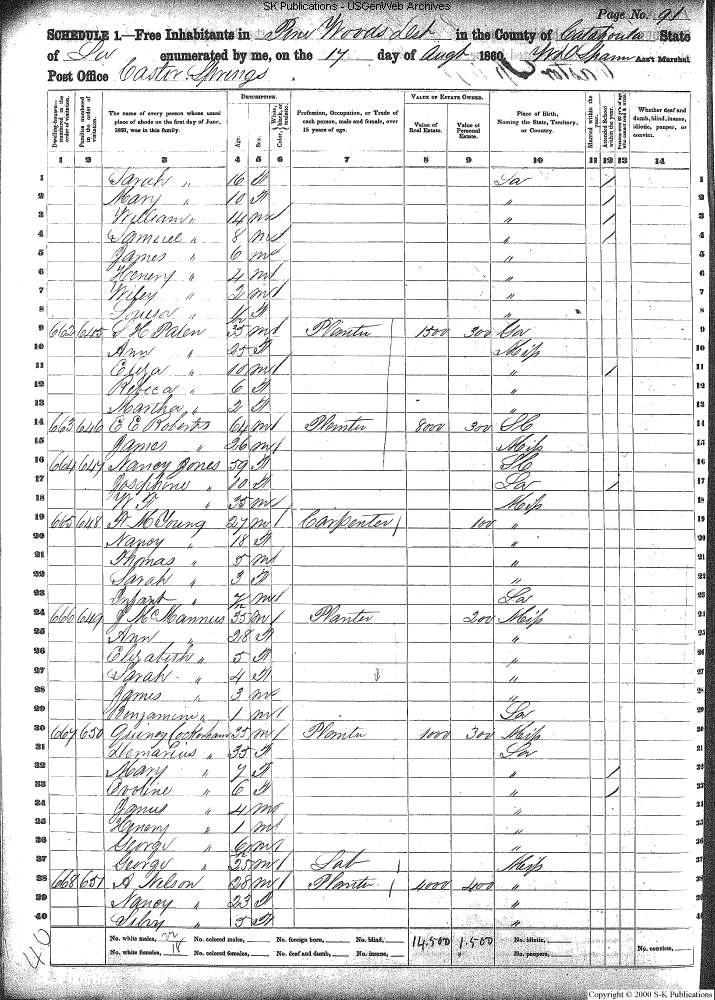 SK Publications - USGenWeb Archives
Page No. 91
SCHEDULE 1.—Free Inhabitants in Pine Woods Dist in the County of Catahoula State
of La enumerated by me, on the 17 day of Augt 1860. Ass't Marshal
Post Office Castor Springs
Dwelling-houses—numbered in the order of visitation.
Families numbered in the order of visitation.
The name of every person whose usual place of abode on the first day of June, 1860, was in this family.
DESCRIPTION.
Age.
Sex.
Color, { White, black, or mulatto.
Profession, Occupation, or Trade of each person, male and female, over 15 years of age.
VALUE OF ESTATE OWNED.
Value of Real Estate.
Value of Personal Estate.
Place of Birth, Naming the State, Territory, or Country.
Married within the year.
Attended School within the year.
Persons over 20 y'rs of age who cannot read & write.
Whether deaf and dumb, blind, insane, idiotic, pauper, or convict.
1 2 3 4 5 6 7 8 9 10 11 12 13 14
1 Sarah " 16 F La / 1
2 Mary " 10 F " / 2
3 William " 14 m " / 3
4 Samuel " 8 m " / 4
5 James " 6 m " 5
6 Henery " 4 m " 6
7 Wiley " 2 m " 7
8 Louisa " F " 8
9 662 645 35 m Planter 1500 300 Ga 9
10 Ann " 25 F Miss 10
11 Eliza " 10 m " / 11
12 Rebeca " 6 F " 12
13 Martha " 2 F " 13
14 663 646 E E Roberts 64 m Planter 8000 300 SC 14
15 James " 26 m Miss 15
16 664 647 Nancy Jones 59 F SC 16
17 Josephine " 10 F La / 17
18 W F " 35 m Miss 18
19 665 648 F M Young 27 m Carpenter 100 " 19
20 Nancy " 18 F " 20
21 Thomas " 5 m " 21
22 Sarah " 3 F " 22
23 Infant " 7/12 m La 23
24 666 649 J McMannus 35 m Planter 200 Miss 24
25 Ann " 28 F " 25
26 Elizabeth " 5 F " 26
27 Sarah " 4 F " 27
28 James " 3 m " 28
29 Benjamin " 1 m La 29
30 667 650 Quincy Cockerham 35 m Planter 1000 300 Miss 30
31 Demarius " 35 F La 31
32 Mary " 7 F " / 32
33 Evoline " 6 F " / 33
34 " 4 m " 34
35 Henery " 1 m " 35
36 George " 6/12 m " 36
37 George " 25 m Lab Miss 37
38 668 651 A Nelson 28 m Planter 4000 400 " 38
39 Nancy " 23 F " 39
40 " 5 F " 40
No. white males, 22 No. colored males, No. foreign born, No. blind, 14,500 1,500 No. idiotic,
No. white females, 18 No. colored females, No. deaf and dumb, No. insane, No. paupers, No. convicts,
40
Copyright © 2000 S-K Publications